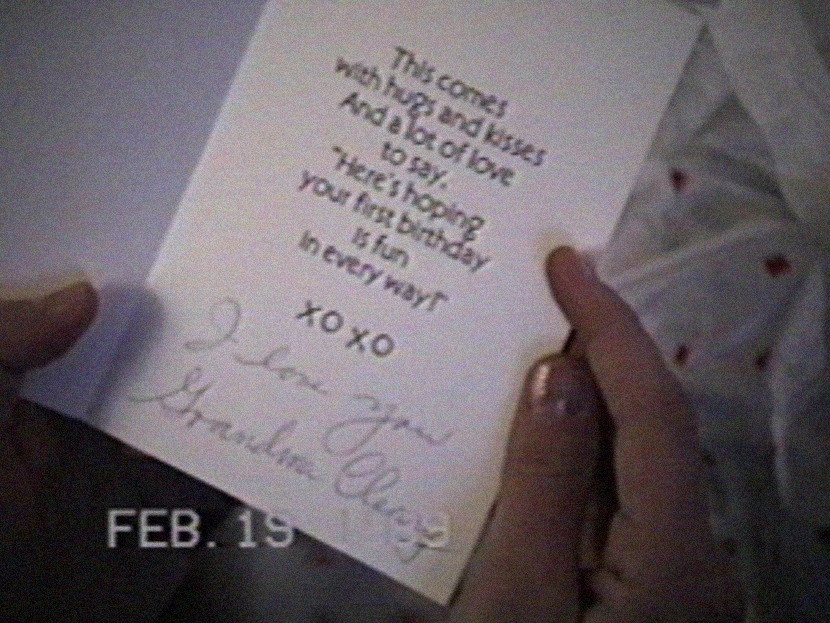 This comes
with hugs and kisses
And a lot of love
to say,
"Here's hoping
your first birthday
is fun
In every way!"
XO XO
I love you
Grandma
FEB. 19